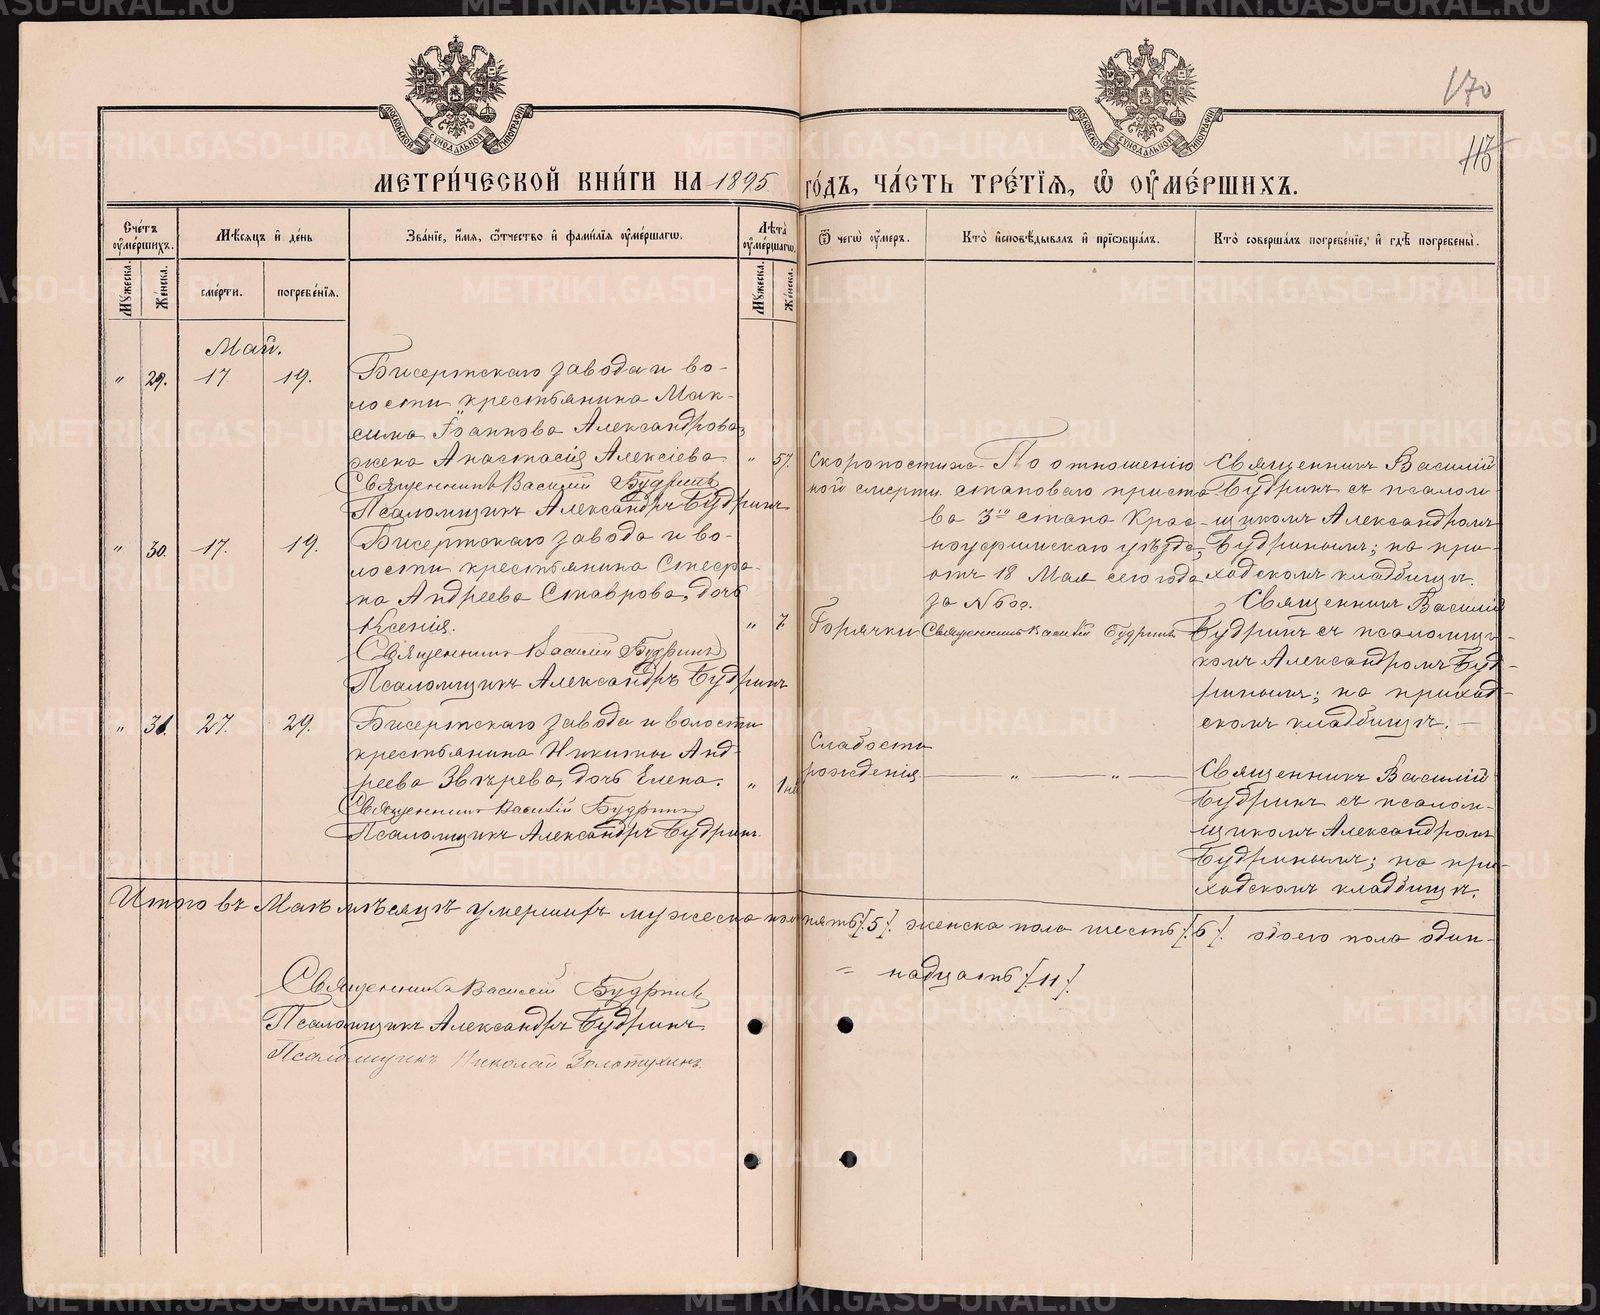 170
118
МЕТРИ́ЧЕСКОЙ КНИ́ГИ НА 1895 ГО́ДЪ, ЧА́СТЬ ТРЕ́ТІѦ, Ѽ ОУМЕ́РШИХЪ.
Сче́тъ оуме́ршихъ.
Мѣ́сяцъ и де́нь
Зва́ніе, и́мя, ѻ́тчество и фами́лія оуме́ршагѡ.
Лѣта̀ оуме́ршагѡ.
Ѿ чегѡ̀ о́умеръ.
Кто̀ и҆сповѣ́дывалъ и прїѡбща́лъ.
Кто̀ соверша́лъ погребе́ніе, и гдѣ̀ погребены̀.
Мꙋ́жеска.
Же́нска.
сме́рти.
погребе́нія.
Мꙋ́жеска.
Же́нска.
Май.
" 29. 17. 19.
Бисертскаго завода и во-
лости крестьянина Мак-
сима Іоаннова Александрова
жена Анастасія Алексіева " 57.
Священникъ Василій Будринъ
Псаломщикъ Александръ Будринъ
Скоропостиж-
ной смерти.
По отношенію
становаго приста-
ва 3го стана Крас-
ноуфимскаго уѣзда,
отъ 18 Мая сего года
за № 600.
Священникъ Василій
Будринъ съ псалом-
щикомъ Александромъ
Будринымъ; на при-
ходскомъ кладбищѣ.
" 30. 17. 19.
Бисертскаго завода и во-
лости крестьянина Стефа-
на Андреева Ставрова, дочь
Ксенія. " 7.
Священникъ Василій Будринъ
Псаломщикъ Александръ Будринъ
Горячки
Священникъ Василій Будринъ
Священникъ Василій
Будринъ съ псаломщи-
комъ Александромъ Буд-
ринымъ; на приход-
скомъ кладбищѣ. —
" 31. 27. 29.
Бисертскаго завода и волости
крестьянина Никиты Анд-
реева Звѣрева, дочь Елена. " 1 нед
Священникъ Василій Будринъ
Псаломщикъ Александръ Будринъ.
Слабости
рожденія — " — " —
Священникъ Василій
Будринъ съ псалом-
щикомъ Александромъ
Будринымъ; на при-
ходскомъ кладбищѣ.
Итого въ Маѣ мѣсяцѣ умершихъ мужеска пола пять [5]. женска пола шесть [6]. обоего пола один-
= надцать [11].
Священникъ Василій Будринъ
Псаломщикъ Александръ Будринъ
Псаломщикъ Николай Золотухинъ.
METRIKI.GASO-URAL.RU